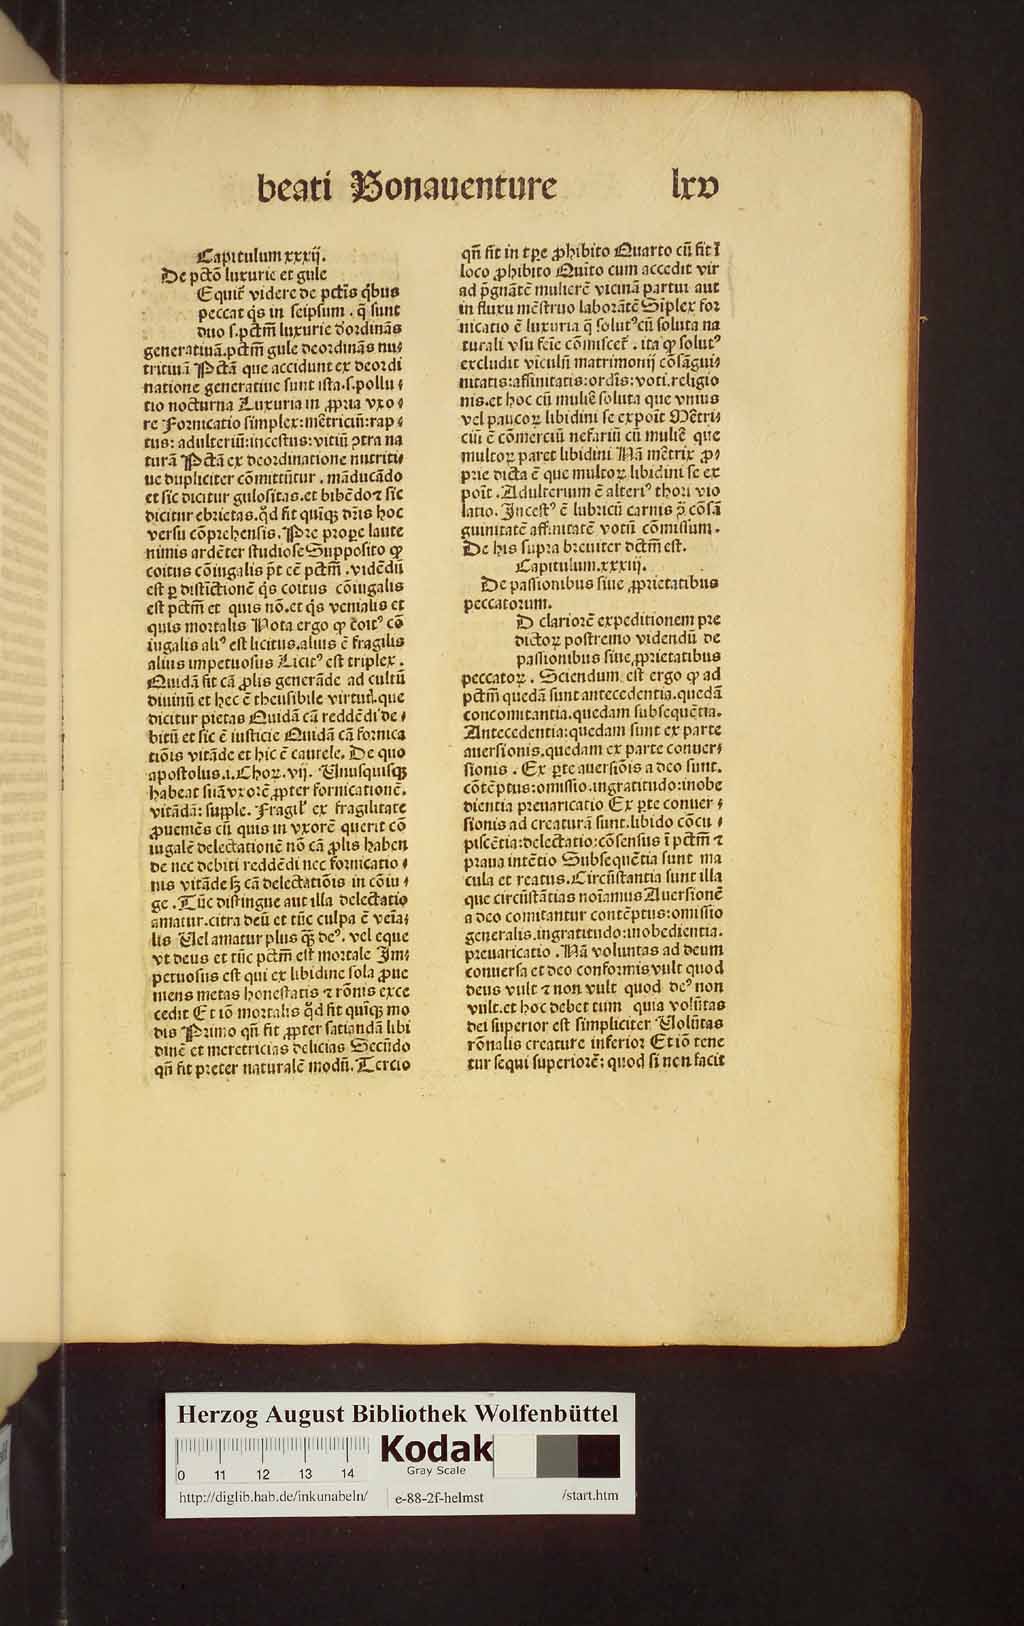 beati Bonauenture lxv
Capitulum xxxij.
De pctõ luxurie et gule
Equit᷑ videre de pctĩs q̃bus
peccat q̇s in seipsum . q̃ sunt
duo s.pctm̃ luxurie dordinãs
generatiuã.pctm̃ gule deordinãs nu⸗
tritiuã Pctã que accidunt ex deordi
natione generatiue sunt ista.s.pollu⸗
tio nocturna Luxuria in ꝓpria vxo⸗
re Fornicatio simplex:mẽtriciũ:rap⸗
tus: adulteriũ:incestus:vitiũ ↄtra na
turã Pctã ex deordinatione nutriti⸗
ue dupliciter cõmittũtur . mãducãdo
et sic dicitur gulositas.et bibẽdo⁊ sic
dicitur ebrietas.q̇d fit quiq̃ꝫ dr̃is hoc
versu cõprehensis. Pre prope laute
nimis ardẽter studiose Supposito ꝙ
coitus cõiugalis p̃t eẽ pctm̃ . vidẽdũ
est ꝑ distĩctionẽ q̇s coitus cõiugalis
est pctm̃ et quis nõ.et q̇s venialis et
quis mortalis Nota ergo ꝙ coit⁹ cõ
iugalis ali⁹ est licitus.alius ẽ fragilis
alius impetuosus Licit⁹ est triplex.
Quidã fit cã ꝓlis generãde ad cultũ
diuinũ et hec ẽ thensibile virtut᷑.que
dicitur pietas Quidã cã reddẽdi de⸗
bitũ et sic ẽ iusticie Quidã cã fornica
tiõis vitãde et hic ẽ cautele. De quo
apostolus.i.Choꝝ.vij. Vnusquisqꝫ
habeat suã vxorẽ ꝓpter fornicationẽ.
vitãdã: supple. Fragil᷑ ex fragilitate
ꝓueniẽs cũ quis in vxorẽ querit cõ
iugalẽ delectationẽ nõ cã ꝓlis haben
de nec debiti reddẽdi nec fornicatio⸗
nis vitãde sꝫ cã delectatiõis in cõiu⸗
ge . Tũc distingue aut illa delectatio
amatur.citra deũ et tũc culpa ẽ veĩa⸗
lis Vel amatur plus q̃ꝫ de⁹. vel eque
vt deus et tũc pctm̃ est mortale Im⸗
petuosus est qui ex libidine sola ꝓue
niens metas honestatis ⁊ rõnis exce
cedit Et iõ mortalis q̇d fit quĩqꝫ mo
dis Primo qñ fit ꝓpter satiandã libi
dinẽ et meretricias delicias Secũdo
qñ fit preter naturalẽ modũ. Tercio
qñ fit in tꝑe ꝓhibito Quarto cũ fit ĩ
loco ꝓhibito Quĩto cum accedit vir
ad p̃gnãtẽ mulierẽ vicinã partui aut
in fluxu mẽstruo laborãtẽ Sĩplex for
nicatio ẽ luxuria q̃ solut⁹cũ soluta na
turali vsu fẽie cõmiscet᷑ . ita ꝙ solut⁹
excludit viculũ matrimonij cõsãgui⸗
nitatis:affinitatis:ordĩs:voti.religio
nis.et hoc cũ muliẽ soluta que vnius
vel paucoꝝ libidini se expoĩt Mẽtri⸗
ciũ ẽ cõmerciũ nefariũ cũ muliẽ que
multoꝝ paret libidini Nã mẽtrix ꝓ⸗
prie dicta ẽ que multoꝝ libidini se ex
poĩt . Adulterum ẽ alteri⁹ thori vio
latio. Incest⁹ ẽ lubricũ carnis p̃ cõsã
guinitatẽ affinitatẽ votũ cõmissum.
De his supra breuiter dctm̃ est.
Capitulum.xxxiij.
De passionibus siue ꝓprietatibus
peccatorum.
D clariorẽ expeditionem pre
dictoꝝ postremo videndũ de
passionibus siue ꝓprietatibus
peccatoꝝ . Sciendum est ergo ꝙ ad
pctm̃ quedã sunt antecedentia.quedã
concomitantia.quedam subsequẽtia.
Antecedentia:quedam sunt ex parte
auersionis.quedam ex parte conuer⸗
sionis . Ex ꝑte auersiõis a deo sunt.
cõtẽptus:omissio.ingratitudo:inobe
dientia preuaricatio Ex ꝑte conuer⸗
sionis ad creaturã sunt.libido cõcu⸗
piscẽtia:delectatio:cõsensus ĩ pctm̃ ⁊
praua intẽtio Subsequẽtia sunt ma
cula et reatus. Circũstantia sunt illa
que circũstãtias noĩamus Auersionẽ
a deo comitantur contẽptus:omissio
generalis.ingratitudo:inobedientia.
preuaricatio . Nã voluntas ad deum
conuersa et deo conformis vult quod
deus vult ⁊ non vult quod de⁹ non
vult.et hoc debet tum quia volũtas
dei superior est simpliciter Volũtas
rõnalis creature inferior Et iõ tene
tur sequi superiorẽ: quod si non facit
Herzog August Bibliothek Wolfenbüttel
0 11 12 13 14
Kodak
Gray Scale
http://diglib.hab.de/inkunabeln/ e-88-2f-helmst /start.htm